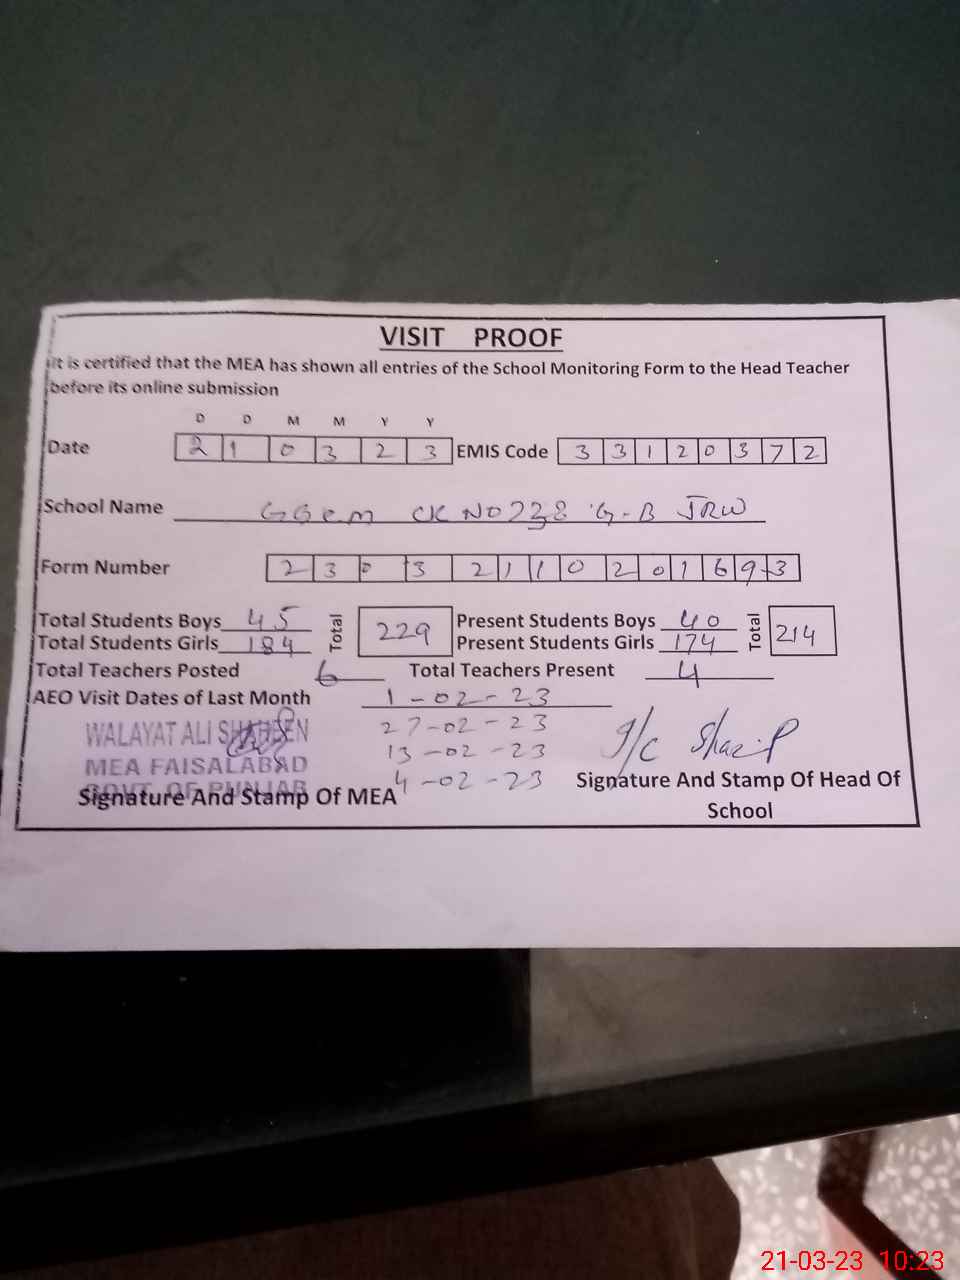 VISIT PROOF
It is certified that the MEA has shown all entries of the School Monitoring Form to the Head Teacher
before its online submission
D D M M Y Y
Date 2 1 0 3 2 3 EMIS Code 3 3 1 2 0 3 7 2
School Name CK NO 238 G-B JRW
Form Number 2 3 0 3 2 1 1 0 2 0 1 6 9 3
Total Students Boys 45 Total 229 Present Students Boys 40 Total 214
Total Students Girls 184 Present Students Girls 174
Total Teachers Posted 6 Total Teachers Present 4
AEO Visit Dates of Last Month 1-02-23
27-02-23
13-02-23
4-02-23
WALAYAT ALI SHAHEEN
MEA FAISALABAD
GOVT. OF PUNJAB
Signature And Stamp Of MEA
I/C
Signature And Stamp Of Head Of
School
21-03-23 10:23